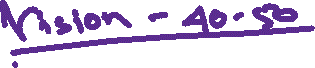 Vision - 40-50